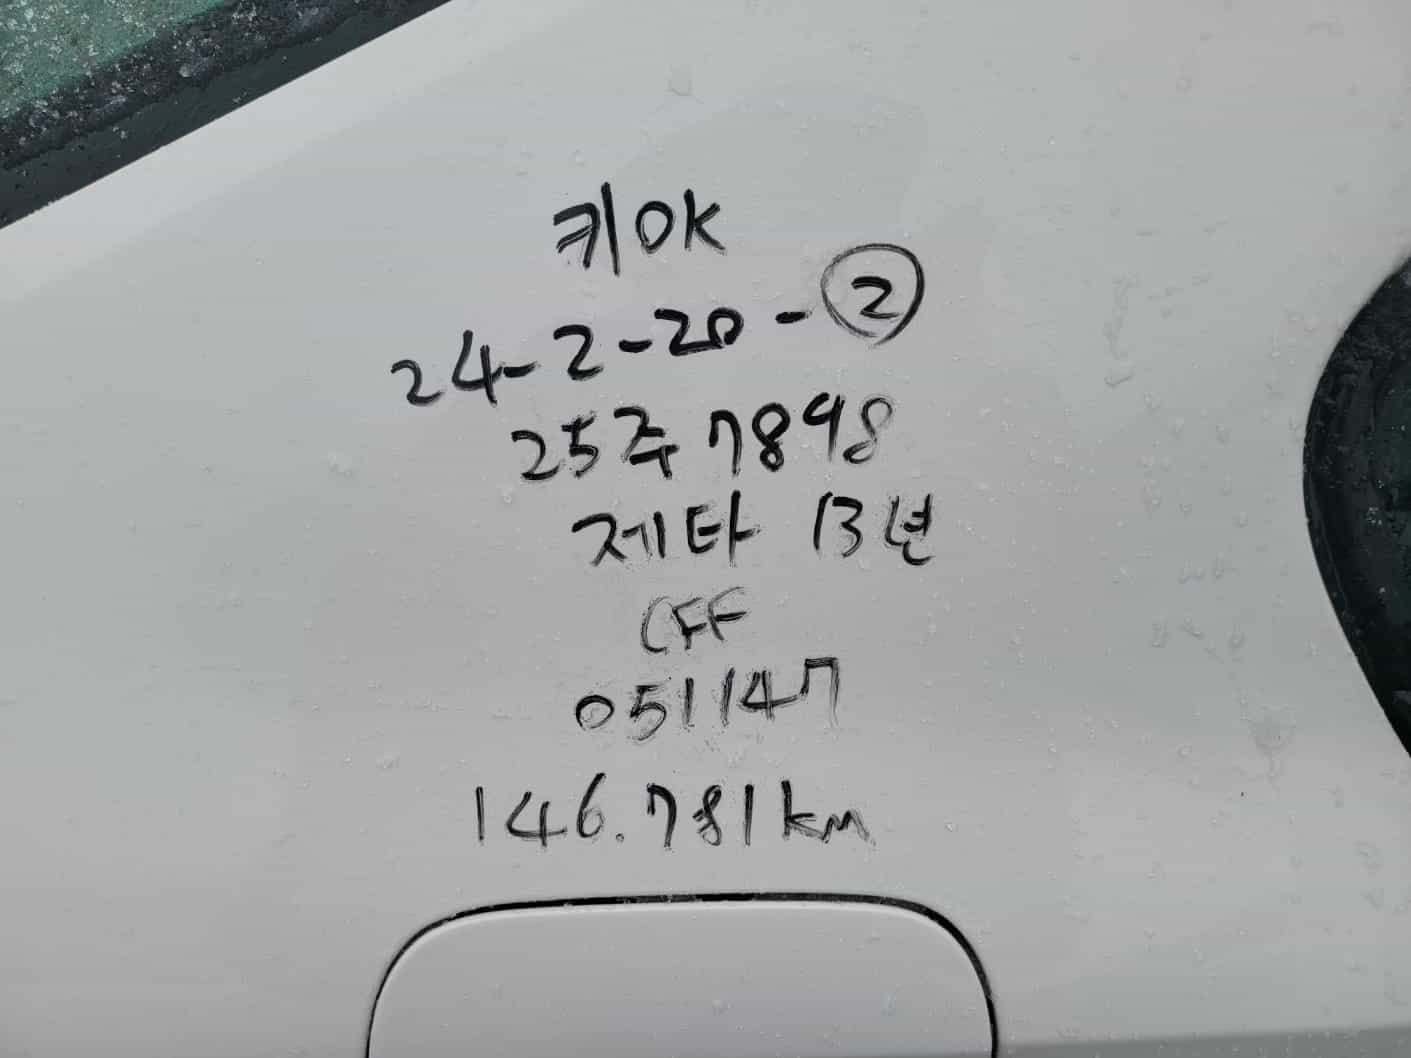 키OK
24-2-20-②
25주7898
제타 13년
CFF
051147
146.781km